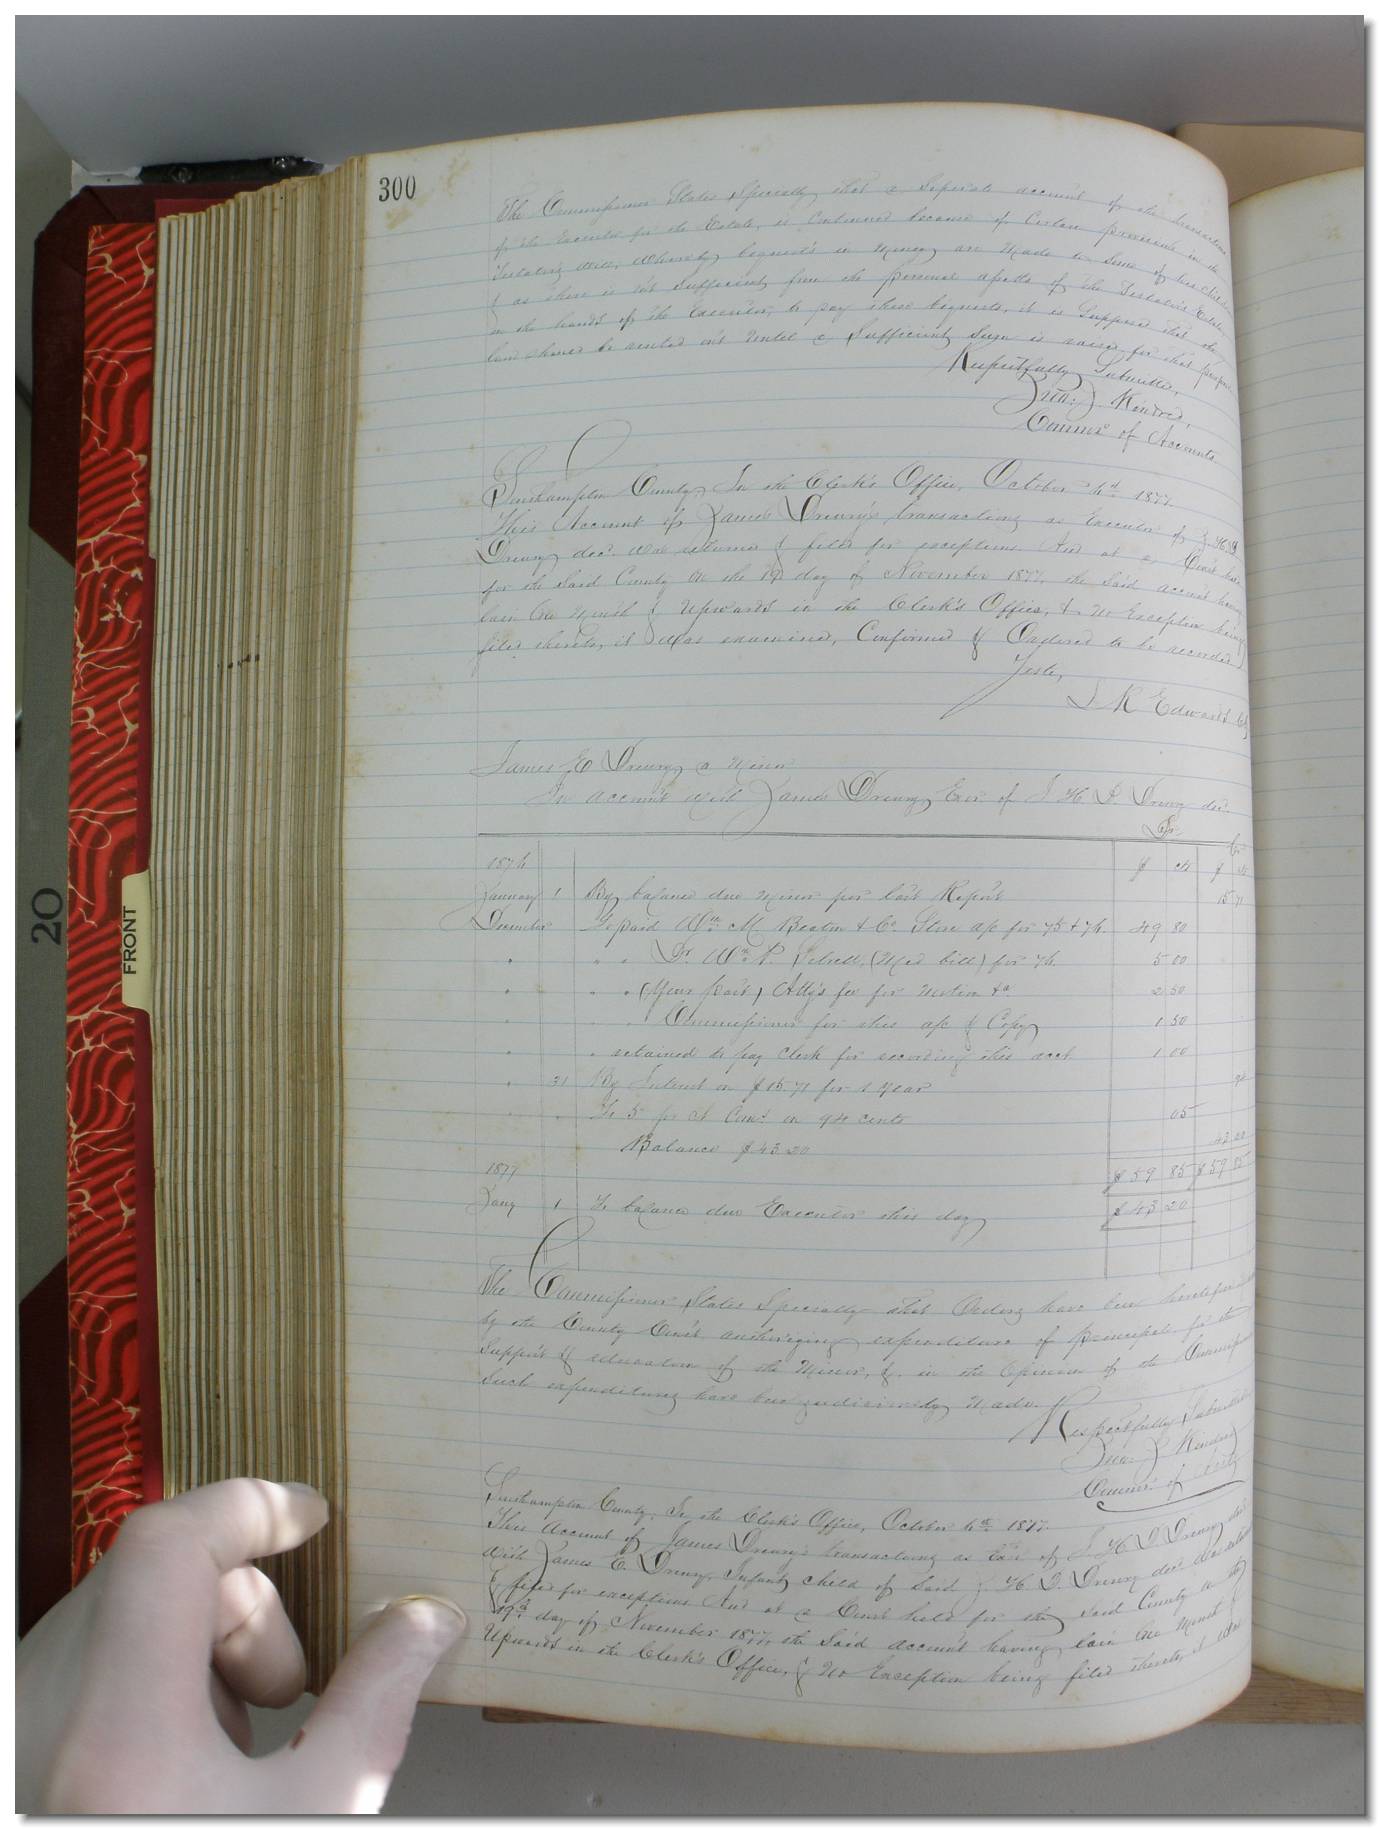 300
The Commissioner States Specially that a Seperate account of the transactions
of the Executor for the Estate, is Continued because of Certain provisions in the
Testators Will, Whereby bequests in Money are Made to Some of his Children
& as there is not Sufficient from the personal assetts of the Testators Estate,
in the hands of the Executor, to pay these bequests, it is Supposed that the
land should be rented out Until a Sufficient Sum is raised for that purpose
Respectfully Submitted,
Jno: J. Kindred,
Commr of Accounts
Southampton County, In the Clerk's Office, October 4th 1877.
This Account of James Drewry's transactions as Executor of J. H. D.
Drewry decd. was returned & filed for exceptions And at a Court held
for the Said County on the 19 day of November 1877, the Said account having
lain One Month & Upwards in the Clerk's Office, & no Exception being
filed thereto, it was examined, Confirmed & Ordered to be recorded
Teste,
L R Edwards Clk
James E Drewry, a Minor
In account with James Drewry Exor. of J H D Drewry decd.
Dr. Cr
1876 $ cts $ cts
January 1 By balance due Minor per last Report 15 71
December To paid Wm. M. Beaton & Co. Store a/c for 75 & 76. 49 80
" " " Dr. Wm. P. (Med bill) for 76. 5 00
" " " (Your part) Atty's fee for Motion &c. 2 50
" " " Commissioner for this a/c & Copy 1 50
" " retained to pay Clerk for recording this acct 1 00
" 31 By Interest on $15.71 for 1 Year 94
" " To 5 per ct Coms. on 94 cents 05
Balance $43.20 43 20
1877 $59 85 $59 85
Jany 1 To balance due Executor this day $43 20
The Commissioner States Specially that Orders have been heretofore
by the County Court authorizing expenditure of principal for the
Support & education of the Minor, & in the Opinion of the Commissioner
Such expenditures have been judiciously Made.
Respectfully Submitted
Jno: J Kindred
Commr. of
Southampton County, In the Clerk's Office, October 4th 1877.
This Account of James Drewry's transactions as Exor of J. H. D Drewry decd
with James E. Drewry, Infant child of Said J H. D. Drewry decd was returned
& filed for exceptions And at a Court held for the Said County on the
19th day of November 1877, the Said account having lain One Month &
Upwards in the Clerk's Office, & no Exception being filed thereto, it was
20
FRONT